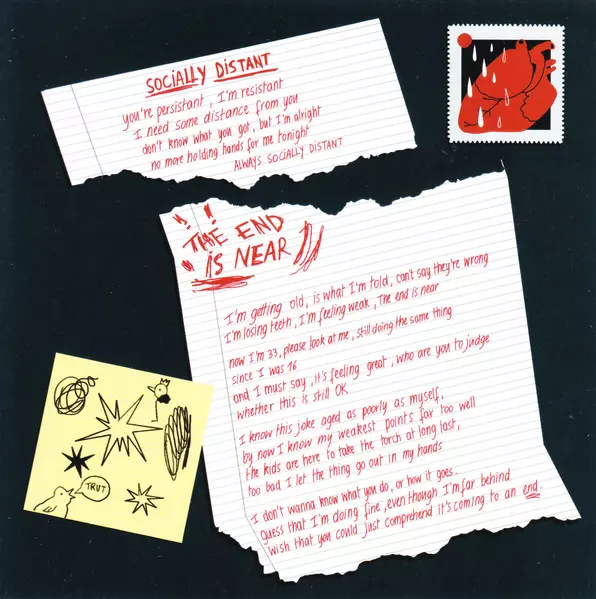 SOCIALLY DISTANT
you're persistant, I'm resistant
I need some distance from you
don't know what you got, but I'm alright
no more holding hands for me tonight
ALWAYS SOCIALLY DISTANT
THE END
IS NEAR
I'm getting old, is what I'm fold, can't say they're wrong
I'm losing teeth, I'm feeling weak, The end is near
now I'm 33, please look at me, still doing the same thing
since I was 16
and I must say, it's feeling great, who are you to judge
whether this is still OK
I know this joke aged as poorly as myself,
by now I know my weakest points far too well
the kids are here to take the torch at long last,
too bad I let the thing go out in my hands
I don't wanna know what you do, or how it goes.
Guess that I'm doing fine, even though I'm far behind
Wish that you could just comprehend it's coming to an end.
TRUT